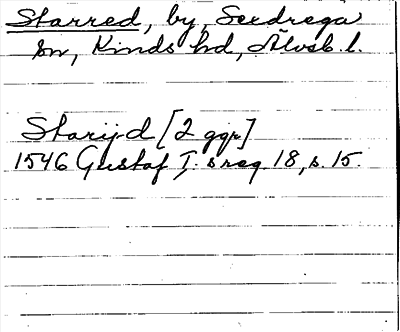 Starred, by, Seedrega
sn, Kinds hd, Älvsb. l.
Starijd [2 ggr]
1546 Gustaf I:s reg. 18, s. 15.